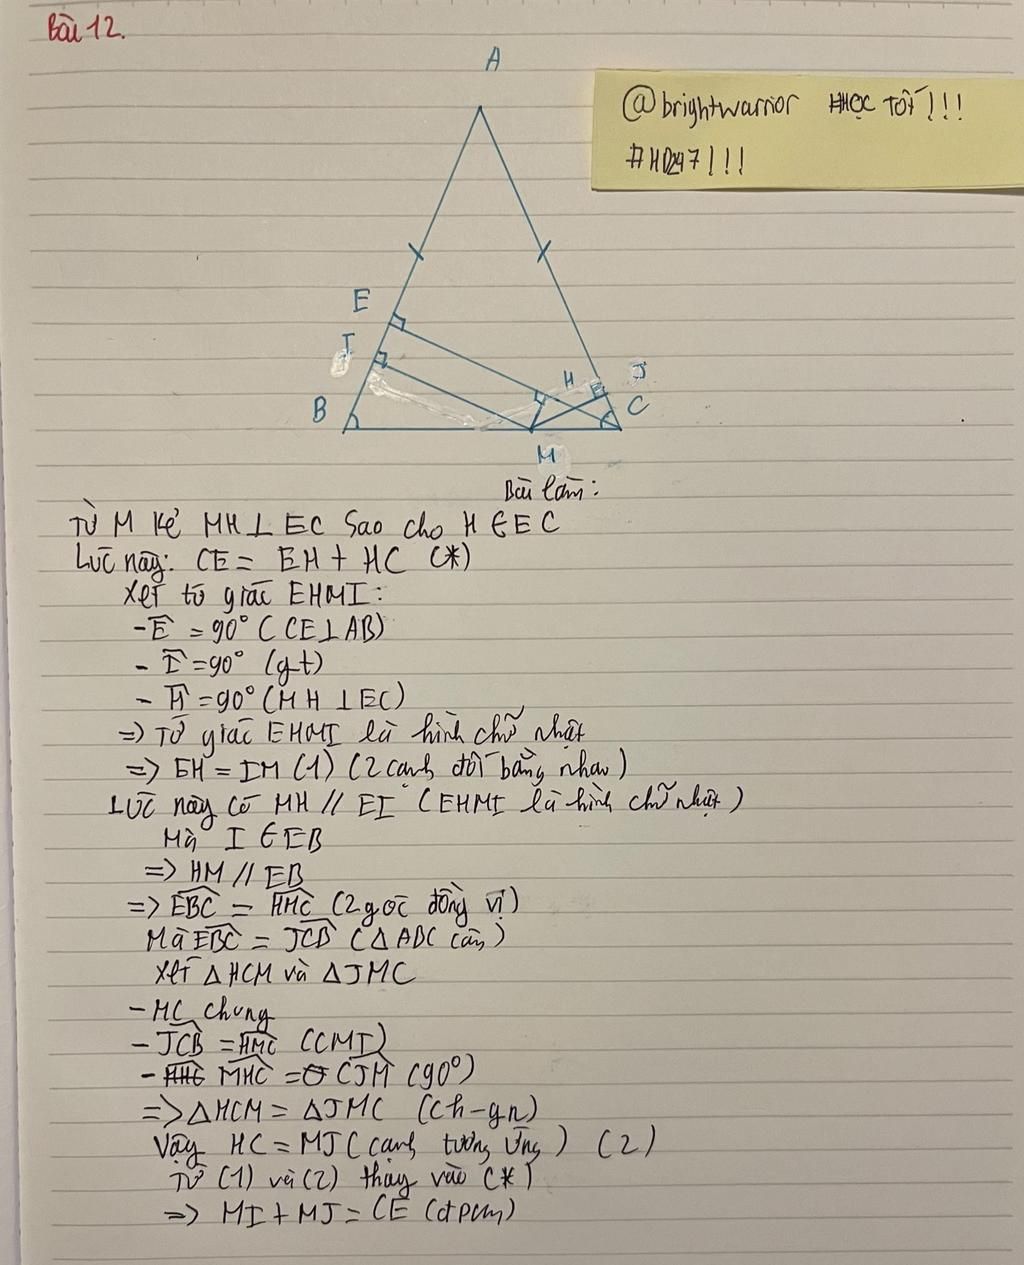 Bài 12.
A
@brightwarrior #HỌC TỐT!!!
#HD247!!!
E
I
H
J
B
C
M
Bài làm:
Từ M kẻ MH ⊥ EC sao cho H ∈ EC
Lúc này: CE = EH + HC (*)
Xét tứ giác EHMI:
- Ê = 90° (CE ⊥ AB)
- Î = 90° (gt)
- Ĥ = 90° (MH ⊥ EC)
=> Tứ giác EHMI là hình chữ nhật
=> EH = IM (1) (2 cạnh đối bằng nhau)
Lúc này có MH // EI (EHMI là hình chữ nhật)
Mà I ∈ EB
=> HM // EB
=> EBC = HMC (2 góc đồng vị)
Mà EBC = JCB (Δ ABC cân)
Xét Δ HCM và Δ JMC
- MC chung
- JCB = HMC (CMT)
- MHC = CJM (90°)
=> Δ HCM = Δ JMC (ch-gn)
Vậy HC = MJ (cạnh tương ứng) (2)
Từ (1) và (2) thay vào (*)
=> MI + MJ = CE (đpcm)